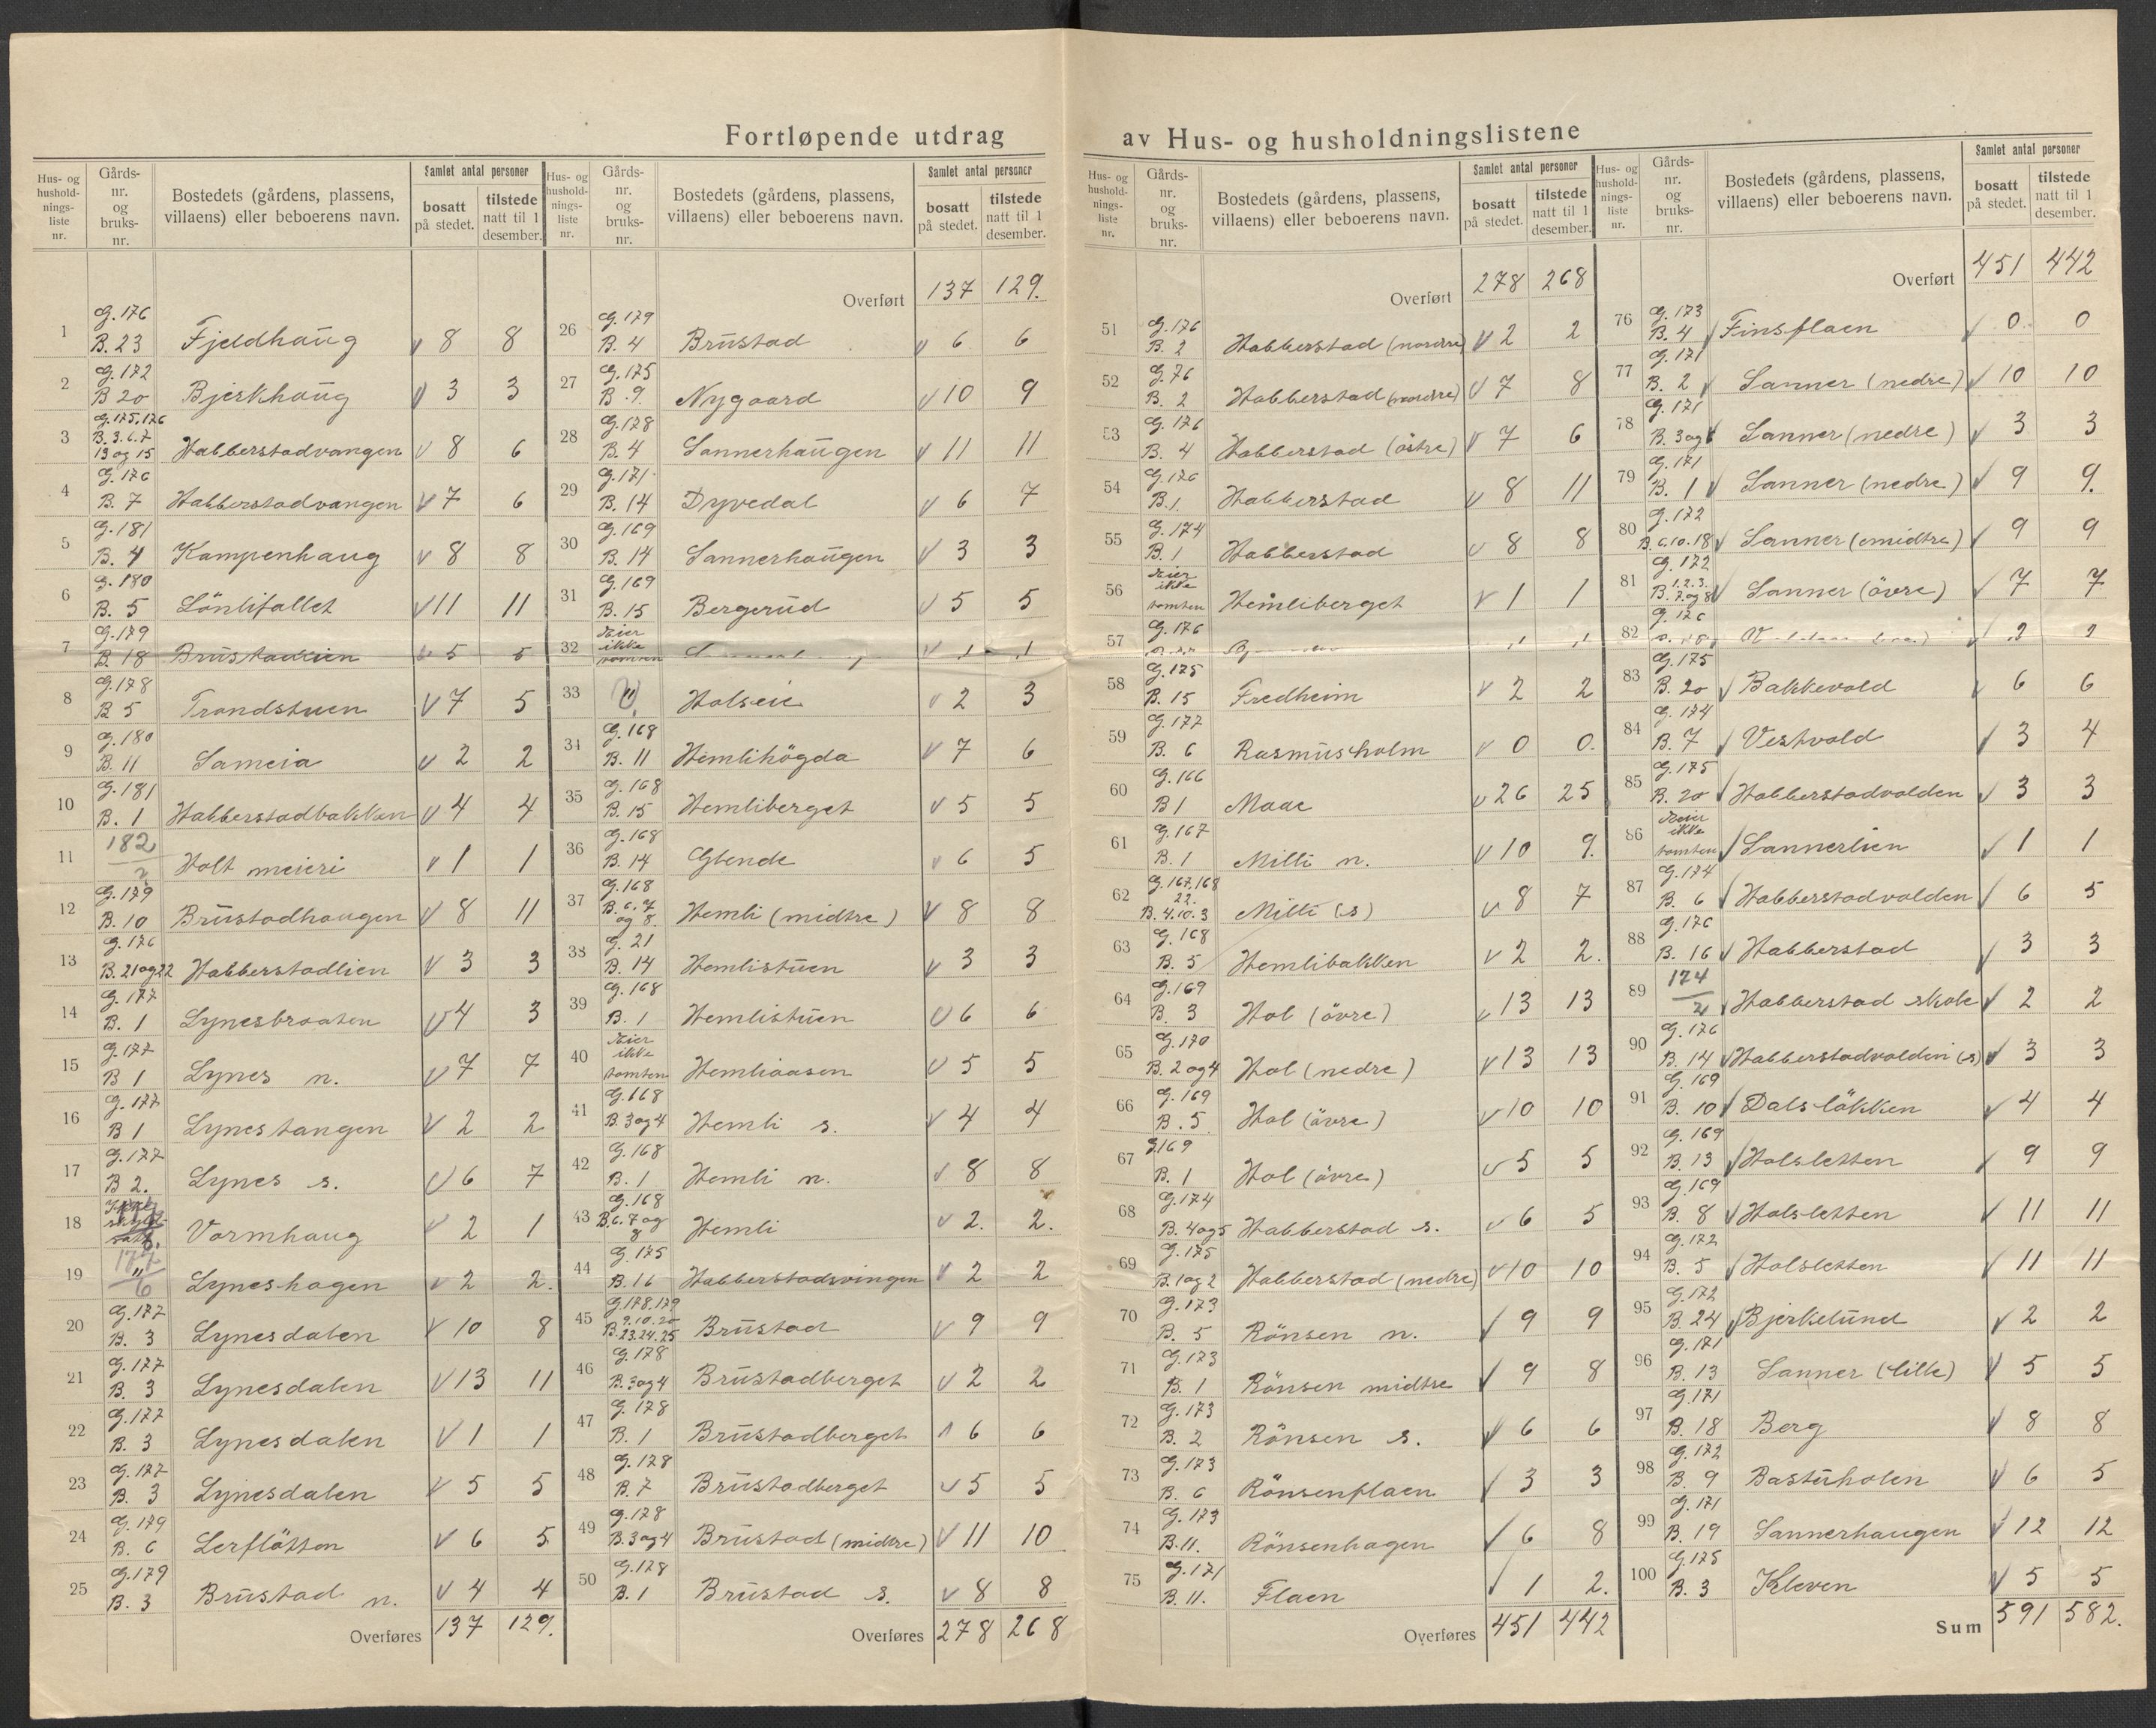 Fortløpende utdrag av Hus- og husholdningslistene
Hus- og hushold-nings-liste nr. | Gårds-nr. og bruks-nr. | Bostedets (gårdens, plassens, villaens) eller beboerens navn. | Samlet antal personer | bosatt på stedet. | tilstede natt til 1 desember.
1 G. 176 B. 23 Fjeldhaug v 8 8
2 G. 172 B 20 Bjerkhaug v 3 3
3 G. 175, 176 B. 3. 6. 7 13 og 15 Habberstadvangen v 8 6
4 G. 176 B. 7 Habberstadvangen v 7 6
5 G. 181 B. 4 Kampenhaug v 8 8
6 G. 180 B. 5 Lönlifallet v 11 11
7 G. 179 B. 18 v 5 5
8 G. 178 B 5 Trondstuen v 7 5
9 G. 180 B. 11 Sameia v 2 2
10 G. 181 B. 1 Habberstadbakken v 4 4
11 182 2 Holt meieri v 1 1
12 G. 179 B. 10 Brustadhaugen v 8 11
13 G. 176 B. 21 og 22 Habberstadlien v 3 3
14 G. 177 B. 1 Lynesbraaten v 4 3
15 G. 177 B 1 Lynes n. v 7 7
16 G. 177 B 1 Lynestangen v 2 2
17 G. 177 B 2. Lynes s. v 6 7
18 Vormhaug v 2 1
19 177 " 6 Lyneshagen v 2 2.
20 G. 177 B. 3 Lynesdalen v 10 8
21 G. 177 B. 3 Lynesdalen v 13 11
22 G. 177 B. 3 Lynesdalen v 1 1
23 G. 177 B. 3 Lynesdalen v 5 5
24 G. 179 B. 6 Lerflötten v 6 5
25 G. 179 B. 3 Brustad n. v 4 4
Overføres 137 129.
Hus- og hushold-nings-liste nr. | Gårds-nr. og bruks-nr. | Bostedets (gårdens, plassens, villaens) eller beboerens navn. | Samlet antal personer | bosatt på stedet. | tilstede natt til 1 desember.
Overført 137 129.
26 G. 179 B. 4 Brustad v 6 6
27 G. 175 B. 9. Nygaard v 10 9
28 G. 178 B. 4 Sannerhaugen v 11 11
29 G. 171 B. 14 Dyvedal v 6 7
30 G. 169 B. 14 Sannerhaugen v 3 3
31 G. 169 B. 15 Bergerud v 5 5
32 Eier ikke tomten v 1 1
33 " Holseie v 2 3
34 G. 168 B. 11 Hemlihögda v 7 6
35 G. 168 B. 15 Hemliberget v 5 5
36 G. 168 B. 14 Glende v 6 5
37 G. 168 B. 6. 7 og 8. Hemli (midtre) v 8 8
38 G. 21 B. 14 Hemlistuen v 3 3
39 G. 168 B. 1 Hemlistuen v 6 6
40 Eier ikke tomten Hemliaasen v 5 5
41 G. 168 B. 3 og 4 Hemli s. v 4 4
42 G. 168 B. 1 Hemli n. v 8 8
43 G. 168 B. 6. 7 og 8 Hemli v 2. 2.
44 G. 175 B. 16 Habberstadsvingen v 2 2
45 G. 178. 179 9. 10. 20 B. 23. 24. 25 Brustad v 9 9
46 G. 178 B. 3 og 4 Brustadberget v 2 2
47 G. 178 B. 1 Brustadberget v 6 6
48 G. 178 B. 7 Brustadberget v 5 5
49 G. 178 B. 3 og 4 Brustad (midtre) v 11 10
50 G. 178 B. 1 Brustad s. v 8 8
Overføres 278 268
Hus- og hushold-nings-liste nr. | Gårds-nr. og bruks-nr. | Bostedets (gårdens, plassens, villaens) eller beboerens navn. | Samlet antal personer | bosatt på stedet. | tilstede natt til 1 desember.
Overført 278 268
51 G. 176 B. 2 Habberstad (nordre) v 2 2
52 G. 76 B. 2 Habberstad (nordre) v 7 8
53 G. 176 B. 4 Habberstad (östre) v 7 6
54 G. 176 B. 1. Habberstad v 8 11
55 G. 174 B. 1 Habberstad v 8 8
56 Eier ikke tomten Hemliberget v 1 1
57 G. 176
58 G. 175 B. 15 Fredheim v 2 2
59 G. 177 B. 6 Rasmusholm v 0 0.
60 G. 166 B 1 Maae v 26 25
61 G. 167 B. 1 Milli n. v 10 9.
62 G. 167, 168 22. B. 4. 10. 3 Milli (s) v 8 7
63 G. 168 B. 5 Hemlibakken v 2 2.
64 G. 169 B. 3 Hol (övre) v 13 13
65 G. 170 B. 2 og 4 Hol (nedre) v 13 13
66 G. 169 B. 5 Hol (övre) v 10 10
67 G. 169 B. 1 Hol (övre) v 5 5
68 G. 174 B. 4 og 5 Habberstad s. v 6 5
69 G. 175 B. 1 og 2 Habberstad (nedre) v 10 10
70 G. 173 B. 5 Rönsen n. v 9 9
71 G. 173 B. 1 Rönsen midtre v 9 8
72 G. 173 B. 2 Rönsen s. v 6 6
73 G. 173 B. 6 Rönsenflaen v 3 3
74 G. 173 B. 11. Rönsenhagen v 6 8
75 G. 171 B. 11. Flaen v 1 2.
Overføres 451 442
Hus- og hushold-nings-liste nr. | Gårds-nr. og bruks-nr. | Bostedets (gårdens, plassens, villaens) eller beboerens navn. | Samlet antal personer | bosatt på stedet. | tilstede natt til 1 desember.
Overført 451 442
76 G. 173 B. 4 Finsflaen v 0 0
77 G. 171 B. 2 Sanner (nedre) v 10 10
78 G. 171 B. 3 og Sanner (nedre) v 3 3
79 G. 171 B. 1 Sanner (nedre) v 9 9.
80 G. 172 B. 6. 10. 18 Sanner (midtre) v 9 9
81 G. 172 1. 2. 3. B. 7 og 8 Sanner (övre) v 7 7
82 G. 176
83 G. 175 B. 20 Bakkevold v 6 6
84 G. 174 B. 7 Vestvold v 3 4
85 G. 175 B. 20 Habberstadvolden v 3 3
86 Eier ikke tomten Sannerlien v 1 1
87 G. 174 B. 6 Habberstadvolden v 6 5
88 G. 176 B. 16 Habberstad v 3 3
89 174 2 Habberstad skole v 2 2
90 G. 176 B. 14 Habberstadvolden (s) v 3 3
91 G. 169 B. 10 Dalslökken v 4 4
92 G. 169 B. 13 Holsletten v 9 9
93 G. 169 B. 8 Holsletten v 11 11
94 G. 172 B. 5 Holsletten v 11 11
95 G. 172 B. 24 Bjerkelund v 2 2
96 G. 171 B. 13 Sanner (lille) v 5 5
97 G. 171 B. 18 Berg v 8 8
98 G. 172 B. 9 Basturholen v 6 5
99 G. 171 B. 19 Sannerhaugen v 12 12
100 G. 175 B. 3 Kleven v 5 5
Sum 591 582.